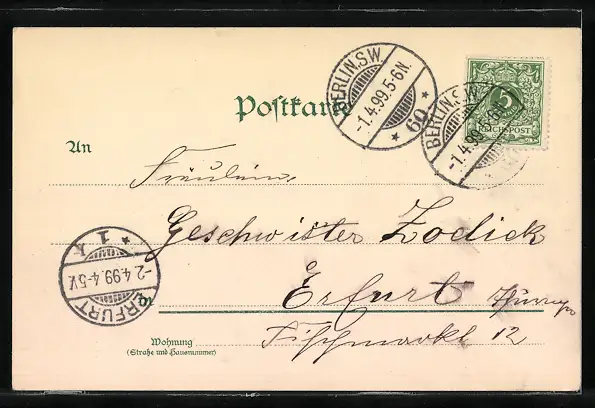 BERLIN.S.W.
-1.4.99.5-6N.
* 60. *
BERLIN.S.W.
-1.4.99.5-6N.
5
REICHSPOST
Postkarte
An
Fräulein
Geschwister Zodick
Erfurt
in
Fischmarkt 12
Wohnung
(Straße und Hausnummer)
ERFURT
-2.4.99.4-5V.
* 1